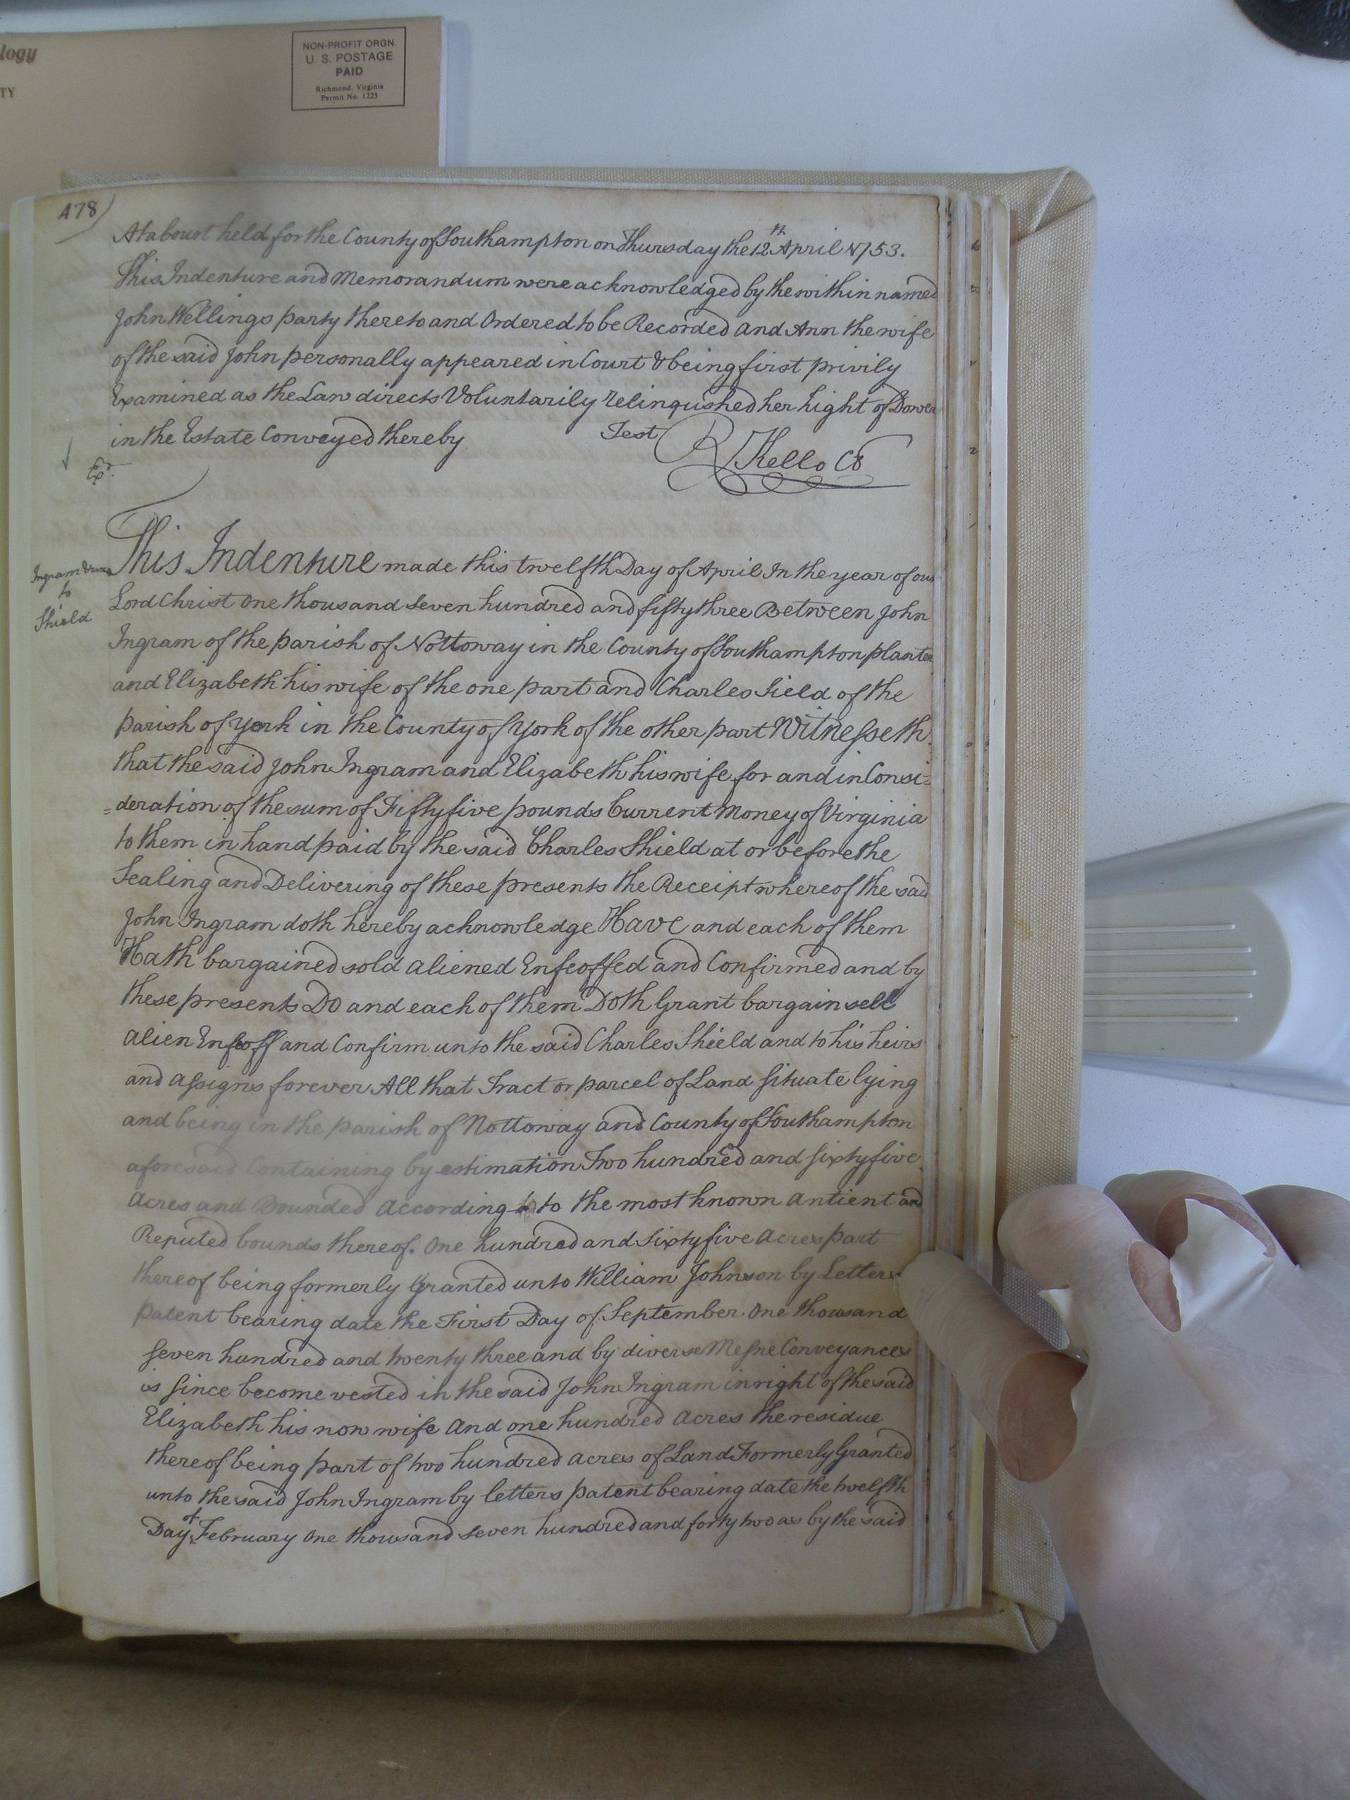 logy
TY
NON-PROFIT ORGN.
U. S. POSTAGE
PAID
Richmond, Virginia
Permit No. 1225
478)
At a Court held for the County of Southampton on Thursday the 12th April 1753.
This Indenture and Memorandum were acknowledged by the within named
John Wellings party thereto and Ordered to be Recorded and Ann the wife
of the said John personally appeared in Court & being first privily
Examined as the Law directs Voluntarily relinquished her hight of Dower
in the Estate Conveyed thereby Test
R Kello CC
Exd
Ingram & ux
to
Shield
This Indenture made this twelfth Day of April In the year of our
Lord Christ One thousand seven hundred and fifty three Between John
Ingram of the parish of Nottoway in the County of Southampton planter
and Elizabeth his wife of the one part and Charles Sield of the
parish of york in the County of York of the other part Witnesseth
that the said John Ingram and Elizabeth his wife for and in Consi=
=deration of the sum of Fifty five pounds Current Money of Virginia
to them in hand paid by the said Charles Shield at or before the
Sealing and Delivering of these presents the Receipt whereof the said
John Ingram doth hereby acknowledge Have and each of them
Hath bargained sold aliened Enfeoffed and Confirmed and by
these presents Do and each of them Doth Grant bargain sell
alien Enfeoff and Confirm unto the said Charles Shield and to his heirs
and assigns forever All that Tract or parcel of Land situate lying
and being in the parish of Nottoway and County of Southampton
aforesaid Containing by estimation Two hundred and sixty five
acres and Bounded according to the most known antient and
Reputed bounds thereof. One hundred and sixty five Acres part
thereof being formerly Granted unto William Johnson by Letters
patent bearing date the First Day of September One thousand
seven hundred and twenty three and by diverse Mesne Conveyances
is since become vested in the said John Ingram in right of the said
Elizabeth his now wife And one hundred acres the residue
thereof being part of two hundred acres of Land Formerly Granted
unto the said John Ingram by letters patent bearing date the twelfth
Day of February one thousand seven hundred and forty two as by the said